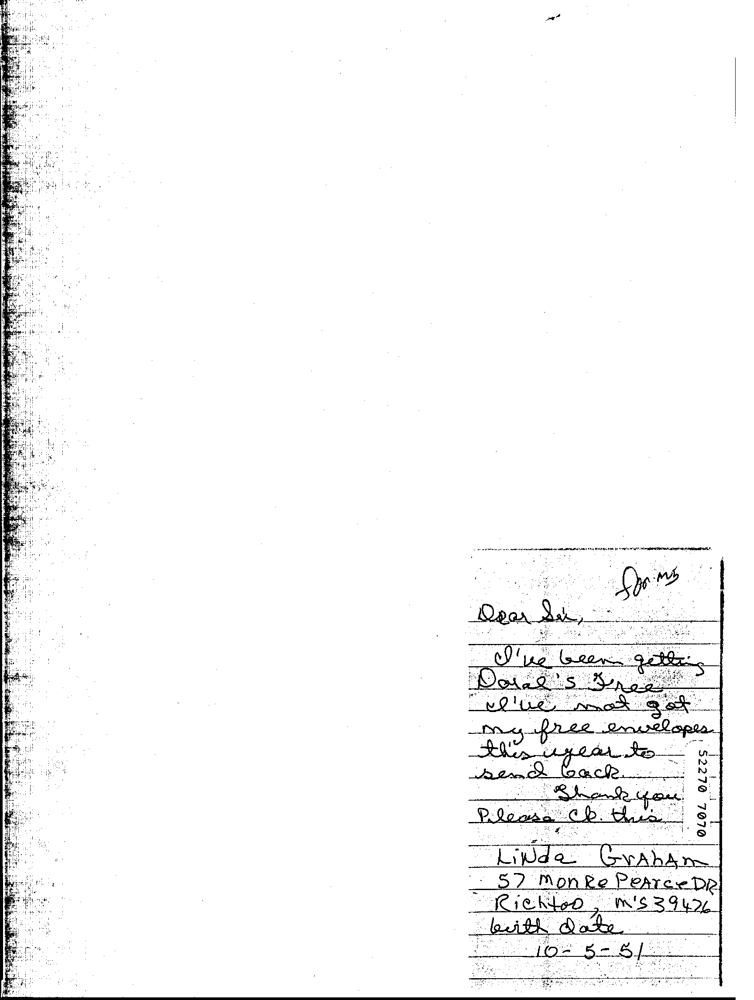 Dear Sir,
I've been getting
Doral's Free
I've not got
my free envelopes
this year to
send back.
Thank you
Please ck. this
Linda Graham
57 Monroe Pearce DR
Richton, M'S 39476
birth date
10-5-51
52270 7070